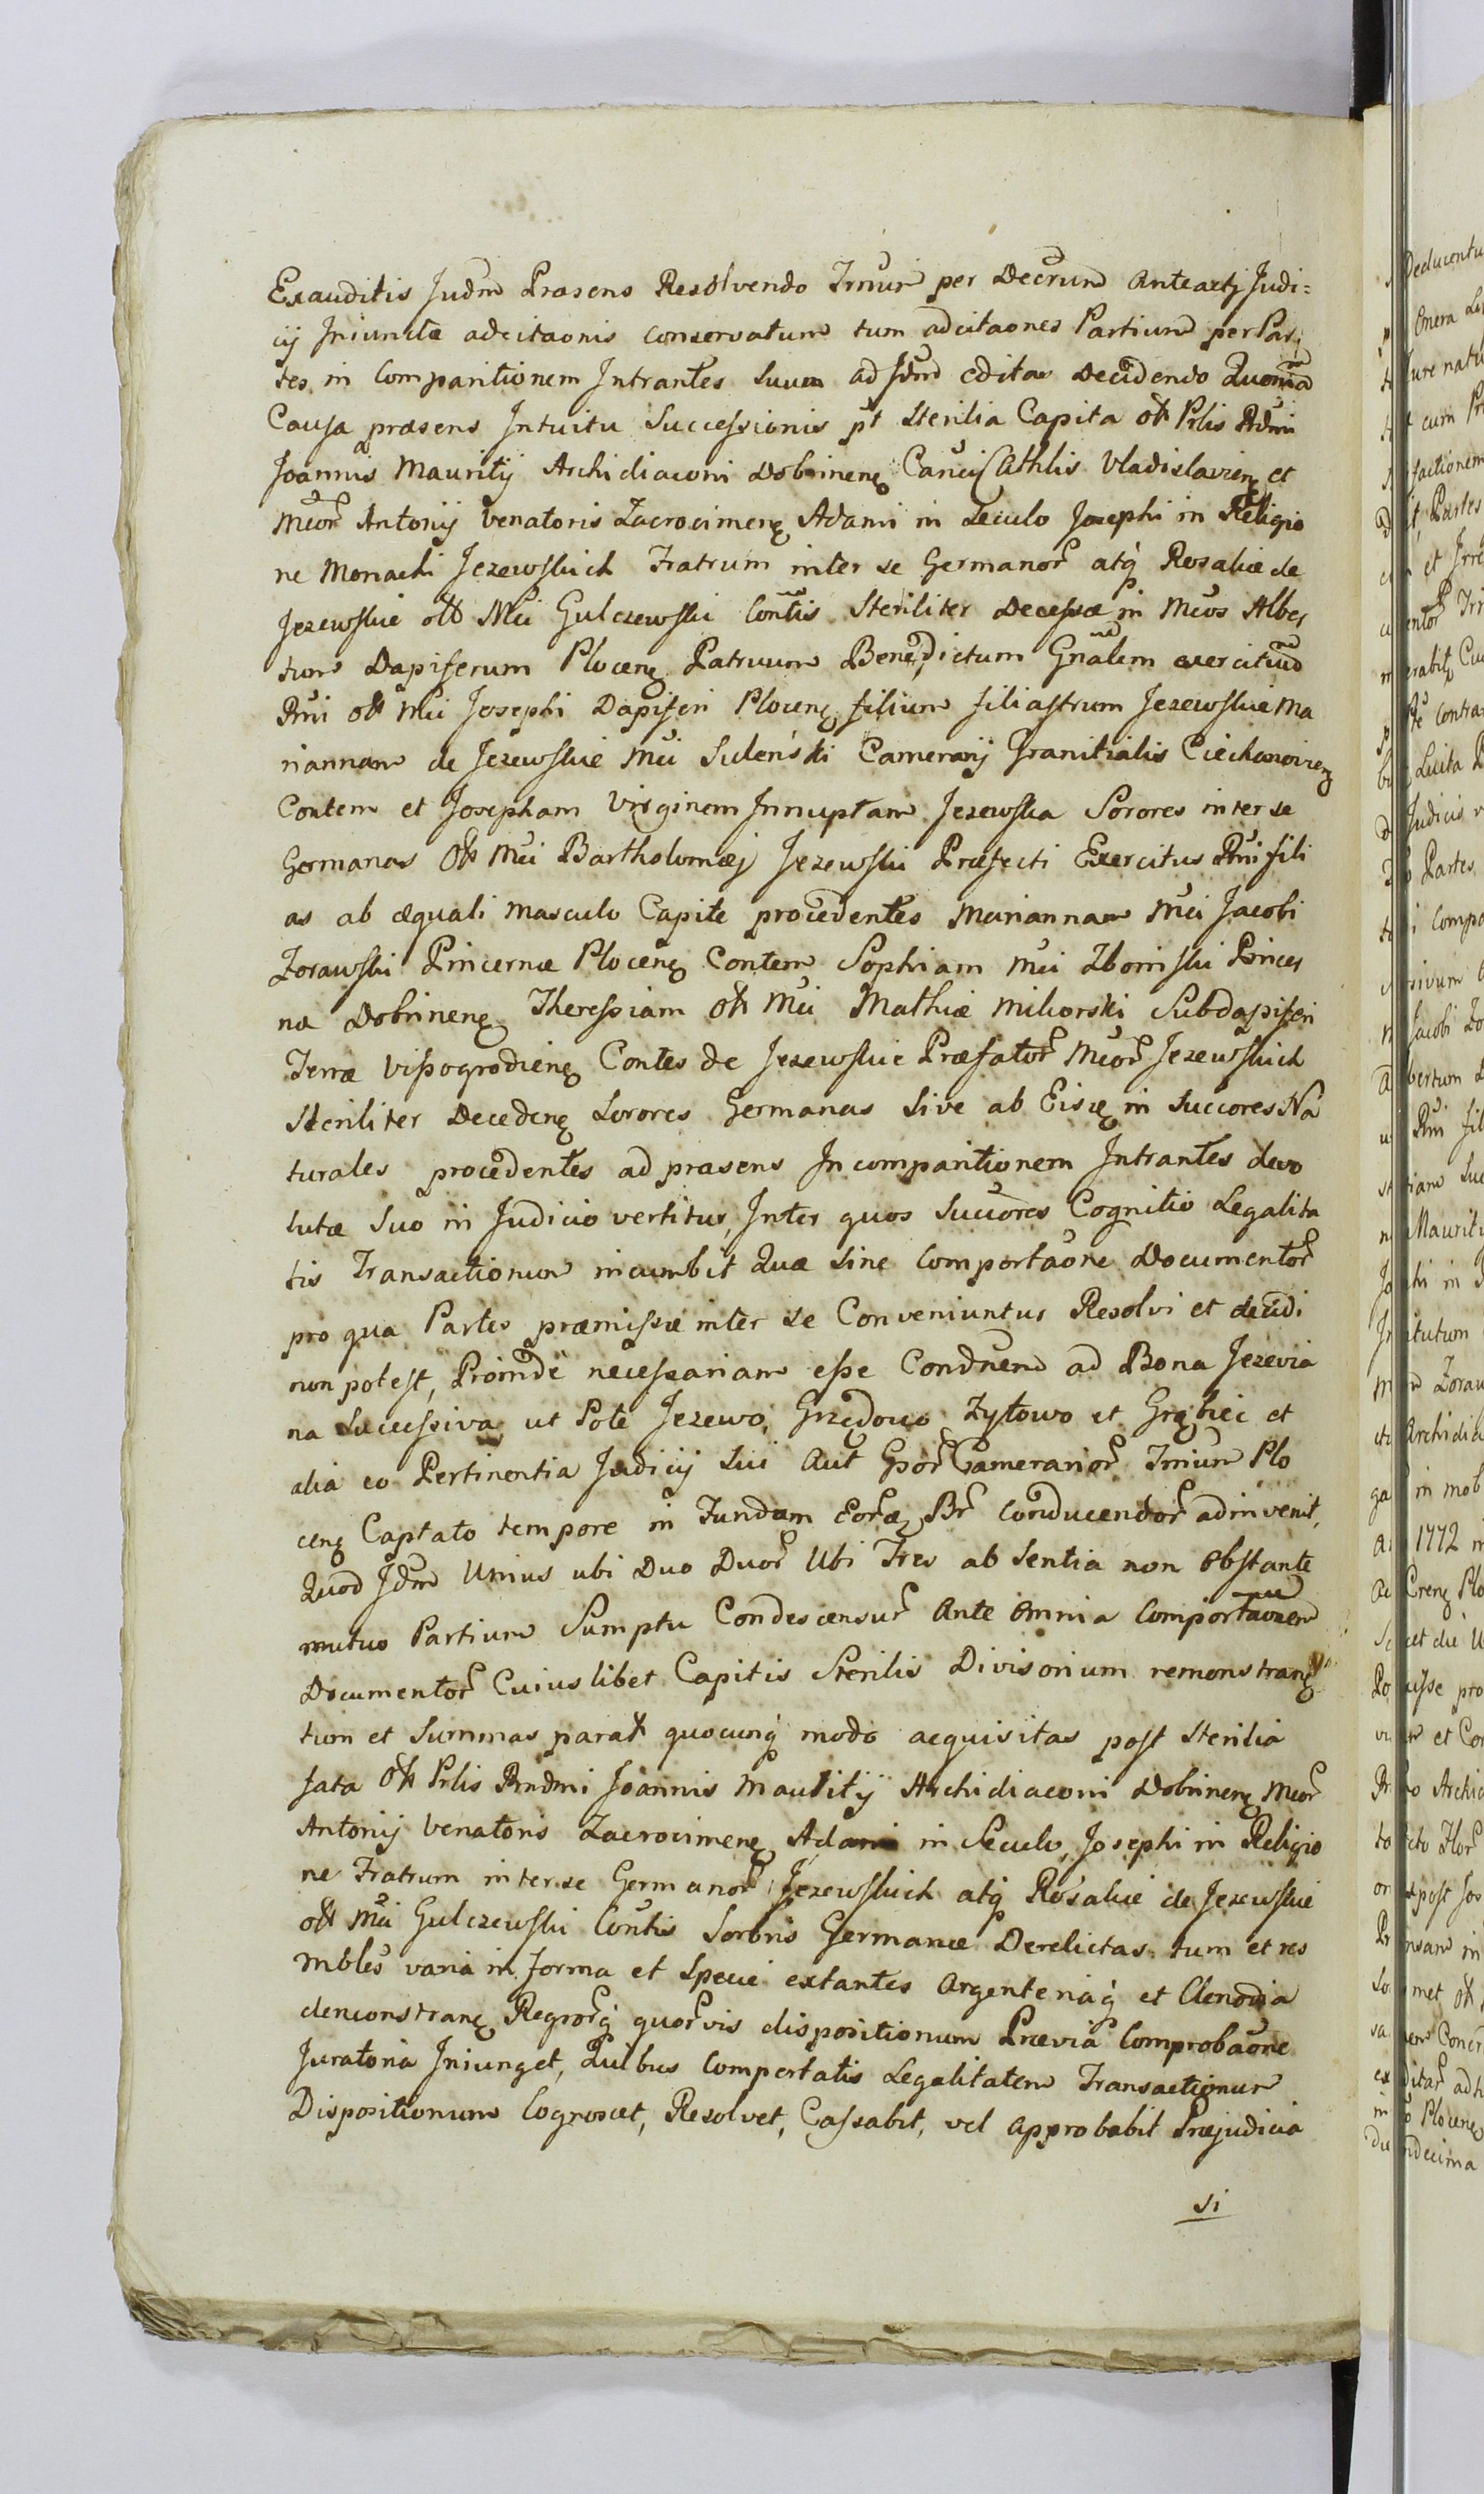 Exauditis Judm Præsens Resolvendo Trnur per Decrum Anteactj Judi=
cij Iniunctæ adcitaonis conservatum tum adcitaones Partium per Par
tes in Comparitionem Intrantes Suum ad Idm editas Decidendo Quoniam
Causa præsens Intuitu Successionis pt Sterilia Capita olt Prlis Rdmi
Joannis Mauritij Archidiaconi Dobrinen Canci Cathlis Vladislavien et
Mcor Antonij Venatoris Zacrocimen Adami in Seculo Josephi in Religio
ne Monachi Jezewskich Fratrum inter se Germanor atq Rosaliæ de
Jezewskie olt Mci Gulczewski Contis Steriliter Decessæ in Mcos Alber
tum Dapiferum Plocen Patruum Benedictum Gnalem exercituum
Rni olt Mci Josephi Dapiferi Plocen filium filiastrum Jezewskie Ma
riannam de Jezewskie Mci Suleński Camerarij Granitialis Ciechanovien
Contem et Josepham Virginem Innuptam Jezewska Sorores inter se
Germanas Olt Mci Bartholomæj Jezewski Præfecti Exercitus Rni fili
as ab æquali masculo Capite procedentes Mariannam Mci Jacobi
Zorawski Pincernæ Plocen Contem Sophiam Mci Zboinski Pincer
næ Dobrinen Theressiam Olt Mci Mathiæ Miliorski Subdapiferi
Terræ Vissogrodien Contes de Jezewskie Præfator Mcor Jezewskich
Steriliter Deceden Sorores Germanas Sive ab Eisq in Succores Na
turales procedentes ad præsens In comparitionem Intrantes devo
lutæ Suo in Judicio vertitur, Inter quos Succores Cognitio Legalita
tis Transactionum incumbit Quæ Sine Comportaone Documentor
pro qua Partes præmissæ inter se Conveniuntur Resolvi et decidi
non potest, Proinde necessariam esse Condnem ad Bona Jezevia
na Successiva ut Pote Jezewo, Grzędowo Zytowo et Grąbiec et
alia eo Pertinentia Judicij Sui Aut Gnor Camerarior Trnum Plo
cen Captato tempore in Fundum Eorq Br Conducendor adinvenit,
Quod Idm Unius ubi Duo Duor Ubi Tres absentia non Obstante
mutuo Partium Sumptu Condescensur Ante Omnia Comportaonem
Documentor Cuiuslibet Capitis Sterilis Divisorium remonstran
tium et Summas parat quocunq modo acquisitas post Sterilia
fata Olt Prlis Rndmi Joannis Mauritij Archidiaconi Dobrinen Mcor
Antonij Venatoris Zacrocimen Adami in Seculo, Josephi in Religio
ne Fratrum inter se Germanor Jezewskich atq Rosaliæ de Jezewskie
olt Mci Gulczewski Contis Sororis Germanæ Derelictas tum et res
mbles varia in forma et Specie extantes Argenteriaq et Clenodia
demonstran Regrorq quorvis dispositionum Prævia Comprobaone
Juratoria Iniunget, Quibus Comportatis Legalitatem Transactionum
Dispositionum Cognoscet, Resolvet, Cassabit, vel Approbabit Præjudicia
si